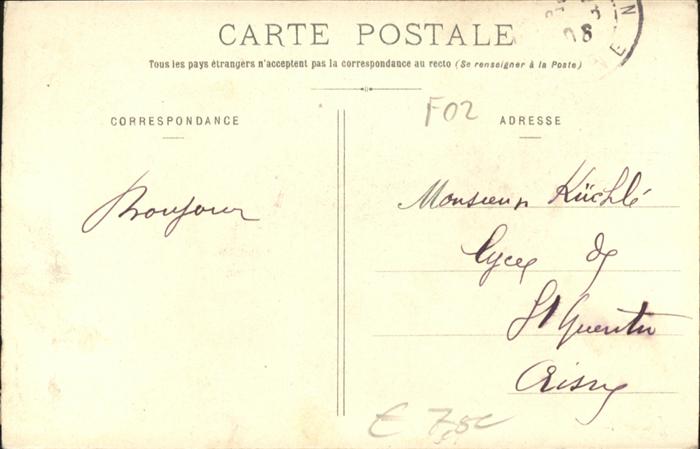 CARTE POSTALE
Tous les pays étrangers n'acceptent pas la correspondance au recto (Se renseigner à la Poste)
CORRESPONDANCE
F02
ADRESSE
Bonjour
Monsieur Küchlé
Lycée de
St Quentin
Aisne
€ 7,50